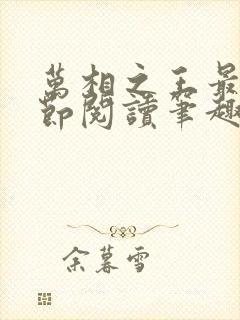 萬相之王最
節閱讀筆趣
余暮雪